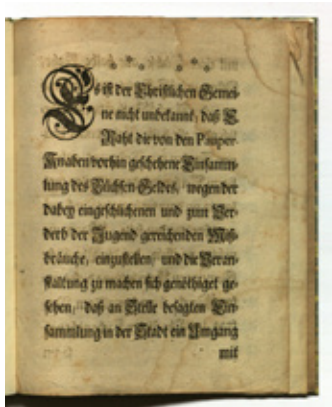 Es ist der Christlichen Gemei-
ne nicht unbekannt, daß E
Raht die von den Pauper-
Knaben vorhin geschehene Einsamm-
lung des Büchsen-Geldes, wegen der
dabey eingeschlichenen und zum Ver-
derb der Jugend gereichenden Miß-
bräuche, einzustellen, und die Veran-
staltung zu machen sich genöthiget ge-
sehen; daß an Stelle besagten Ein-
sammlung in der Stadt ein Umgang
mit